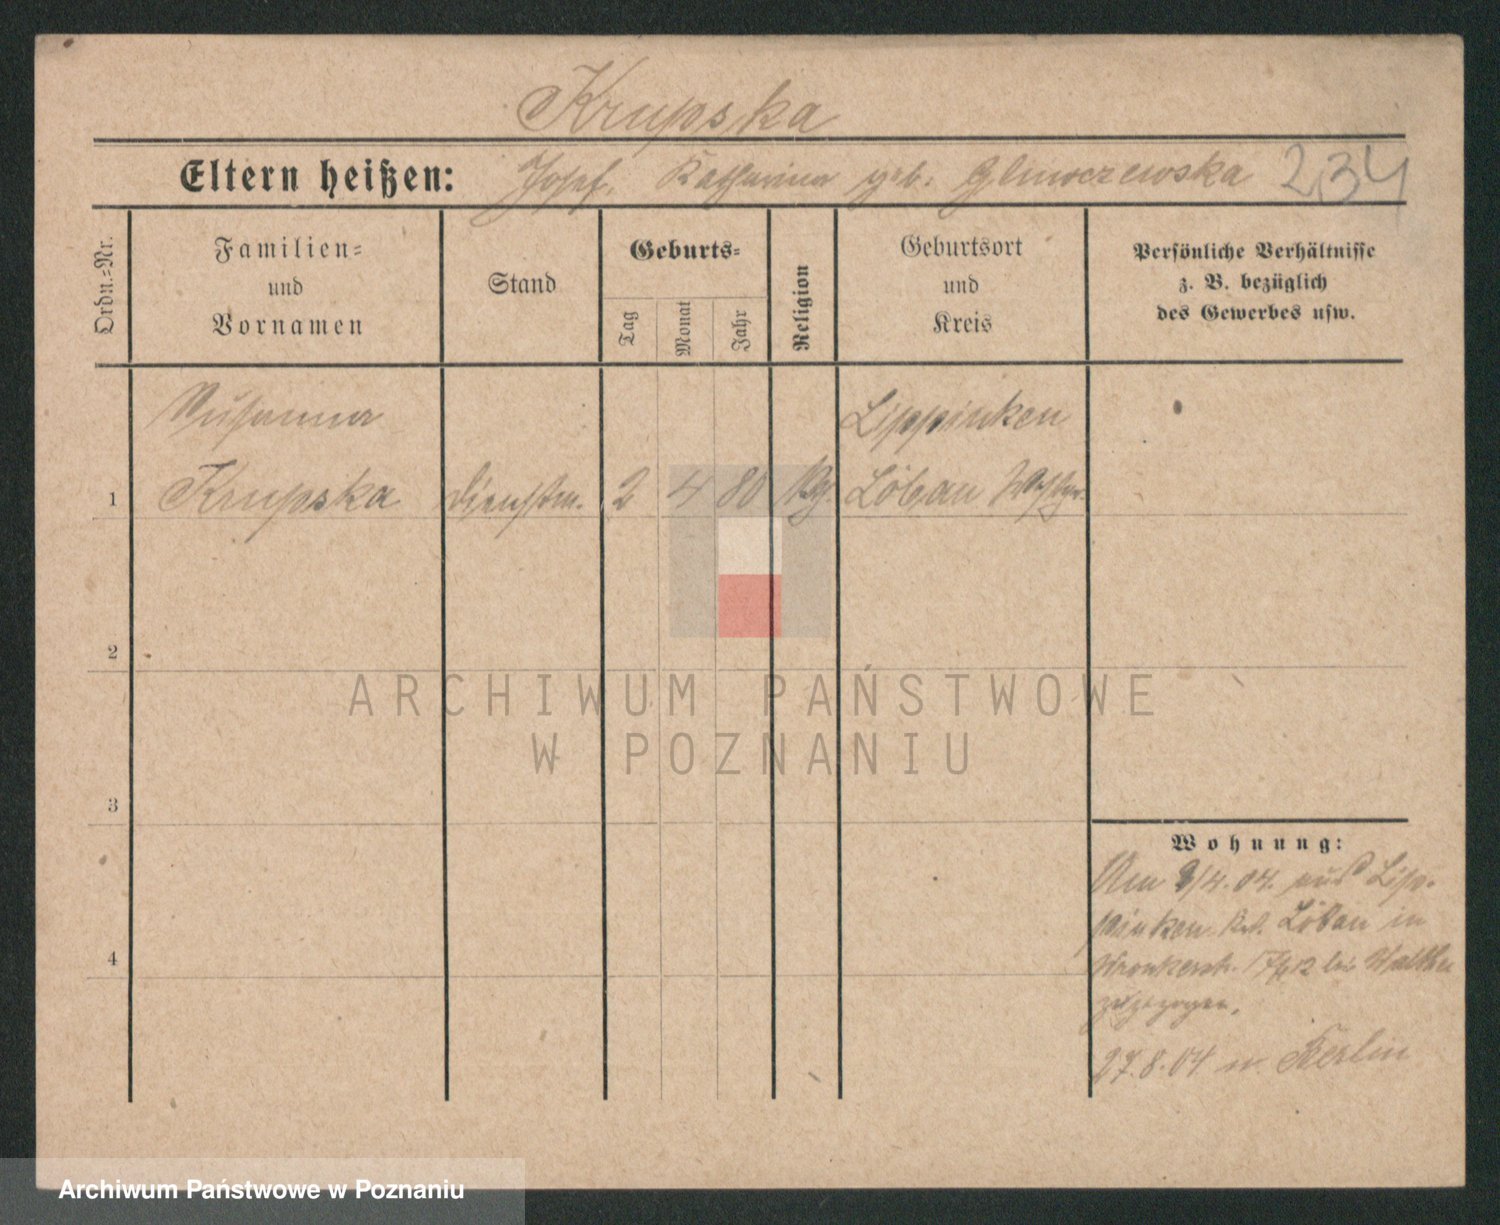 Krupska
Eltern heißen: Josef. Katharina geb. Glowczewska 234
Ordn.=Nr.
Familien=
und
Vornamen
Stand
Geburts=
Tag
Monat
Jahr
Religion
Geburtsort
und
Kreis
Persönliche Verhältnisse
z. B. bezüglich
des Gewerbes usw.
Susanna Lippinken
1 Krupska Dienstm. 2 4 80 Löbau Westpr.
2
ARCHIWUM PAŃSTWOWE
W POZNANIU
3
Wohnung:
Am /4.04. aus Lip-
pinken Löbau in
4 Wronkerstr. bei
zugezogen.
27.8.04 n. Berlin
Archiwum Państwowe w Poznaniu